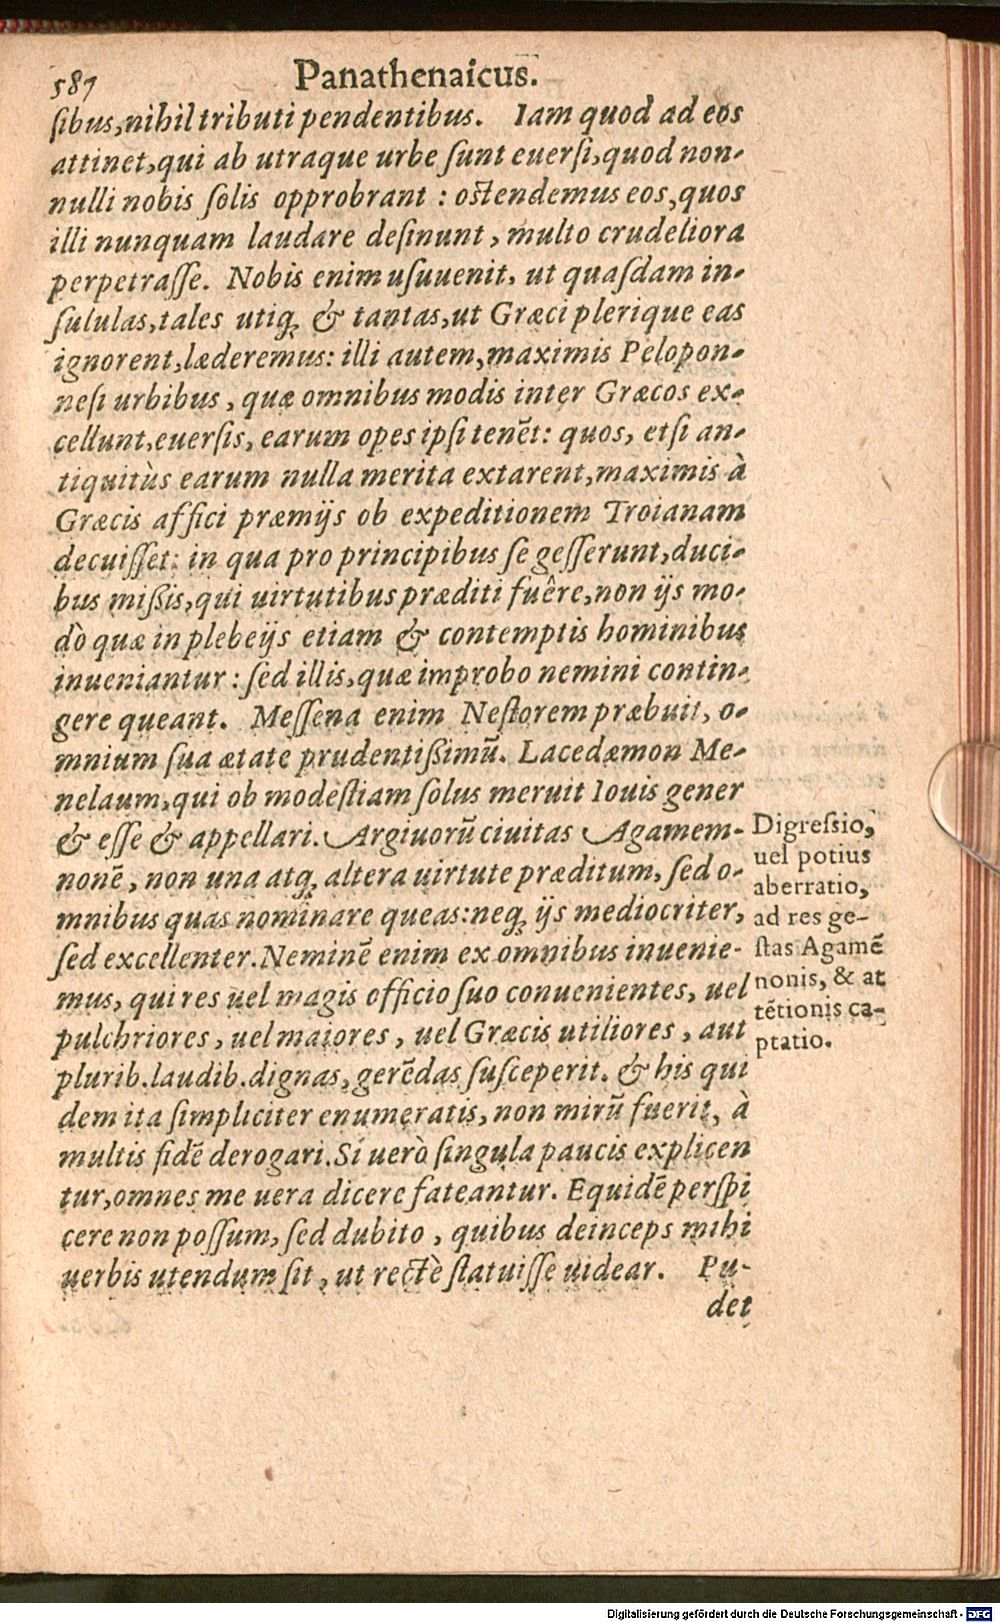 587 Panathenaicus.
ſibus, nihil tributi pendentibus. Iam quod ad eos
attinet, qui ab utraque urbe ſunt euerſi, quod non-
nulli nobis ſolis opprobrant : oſtendemus eos, quos
illi nunquam laudare deſinunt, multo crudeliora
perpetraſſe. Nobis enim uſuuenit, ut quaſdam in-
ſululas, tales utiq; & tantas, ut Græci plerique eas
ignorent, læderemus: illi autem, maximis Pelopon-
neſi urbibus, quæ omnibus modis inter Græcos ex-
cellunt, euerſis, earum opes ipſi tenẽt: quos, etſi an-
tiquitùs earum nulla merita extarent, maximis à
Græcis affici præmijs ob expeditionem Troianam
decuiſſet: in qua pro principibus ſe geſſerunt, duci-
bus mißis, qui uirtutibus præditi fuêre, non ijs mo-
dò quæ in plebeijs etiam & contemptis hominibus
inueniantur : ſed illis, quæ improbo nemini contin-
gere queant. Meſſena enim Neſtorem præbuit, o-
mnium ſua ætate prudentißimũ. Lacedæmon Me-
nelaum, qui ob modeſtiam ſolus meruit Iouis gener
& eſſe & appellari. Argiuorũ ciuitas Agamem-
nonẽ, non una atq; altera uirtute præditum, ſed o-
mnibus quas nominare queas: neq; ijs mediocriter,
ſed excellenter. Neminẽ enim ex omnibus inuenie-
mus, qui res uel magis officio ſuo conuenientes, uel
pulchriores, uel maiores, uel Græcis utiliores, aut
plurib. laudib. dignas, gerẽdas ſuſceperit. & his qui
dem ita ſimpliciter enumeratis, non mirũ fuerit, à
multis fidẽ derogari. Si uerò ſingula paucis explicen
tur, omnes me uera dicere fateantur. Equidẽ perſpi
cere non poſſum, ſed dubito, quibus deinceps mihi
uerbis utendum ſit, ut rectè ſtatuiſſe uidear. Pu-
det
Digreſsio,
uel potius
aberratio,
ad res ge-
ſtas Agamẽ
nonis, & at
tẽtionis ca-
ptatio.
Digitalisierung gefördert durch die Deutsche Forschungsgemeinschaft - DFG